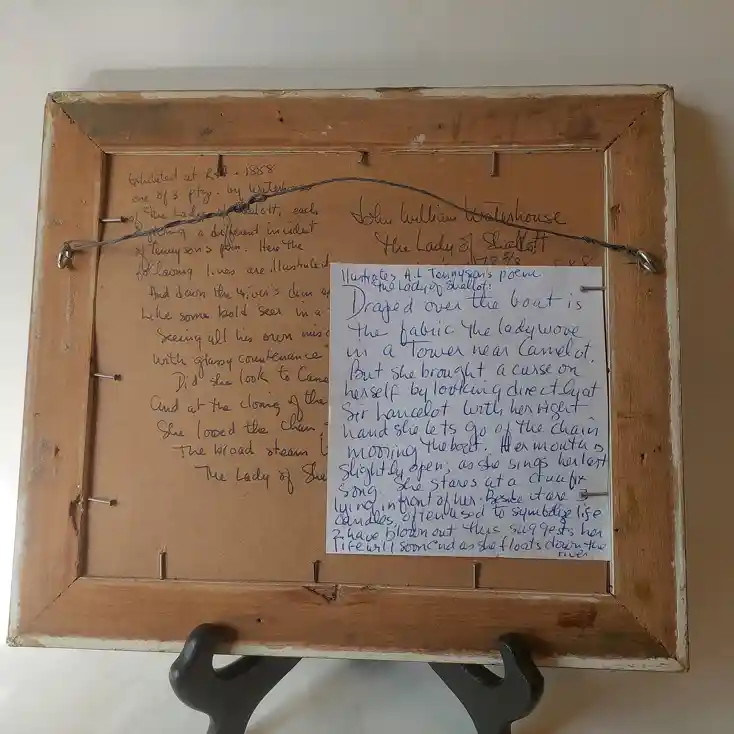 Exhibited at RA. 1888
one of 3 ptgs. by Waterhouse
of the Lady of Shalott, each
a different incident
of Tennyson's poem. Here the
following lines are illustrated
And down the river's dim
Like some bold seer in a
Seeing all his own misc
With glassy countenance
Did she look to Came
And at the closing of the
She loosed the chain
The broad stream
The Lady of Sha
John William Waterhouse
The Lady of Shalott
Illustrates A.L Tennyson's poem
The Lady of Shallot:
Draped over the boat is
the fabric the lady wove
in a Tower near Camelot.
But she brought a curse on
herself by looking directly at
Sir Lancelot with her right
hand she lets go of the chain
mooring the boat. Her mouth is
slightly open, as she sings her last
song. She stares at a crucifix
lying in front of her. Beside it are 3
candles, often used to symbolize life
2 have blown out this suggests her
life will soon end as she floats down the
river